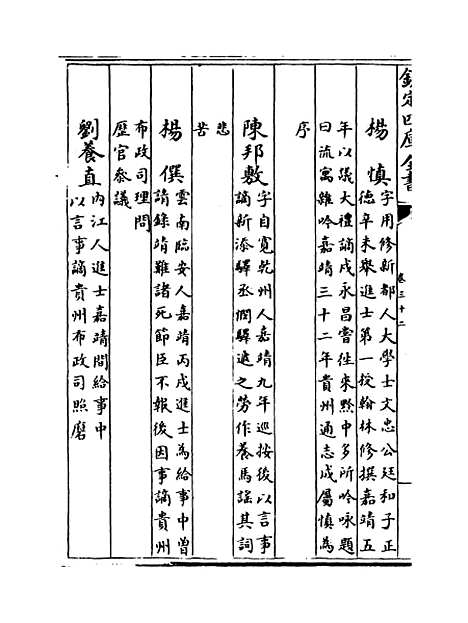 欽定四庫全書
卷三十二
楊慎字用修新都人大學士文忠公廷和子正
德辛未舉進士第一授翰林修撰嘉靖五
年以議大禮謫戍永昌嘗往來黔中多所吟咏題
曰流寓雜吟嘉靖三十二年貴州通志成屬慎為
序
陳邦敷字自寛乾州人嘉靖九年巡按後以言事
謫新添驛丞憫驛遞之勞作養馬謡其詞
悲
苦
楊僎雲南臨安人嘉靖丙戌進士為給事中曽
請錄靖難諸死節臣不報後因事謫貴州
布政司理問
歴官叅議
劉養直内江人進士嘉靖間給事中
以言事謫貴州布政司照磨